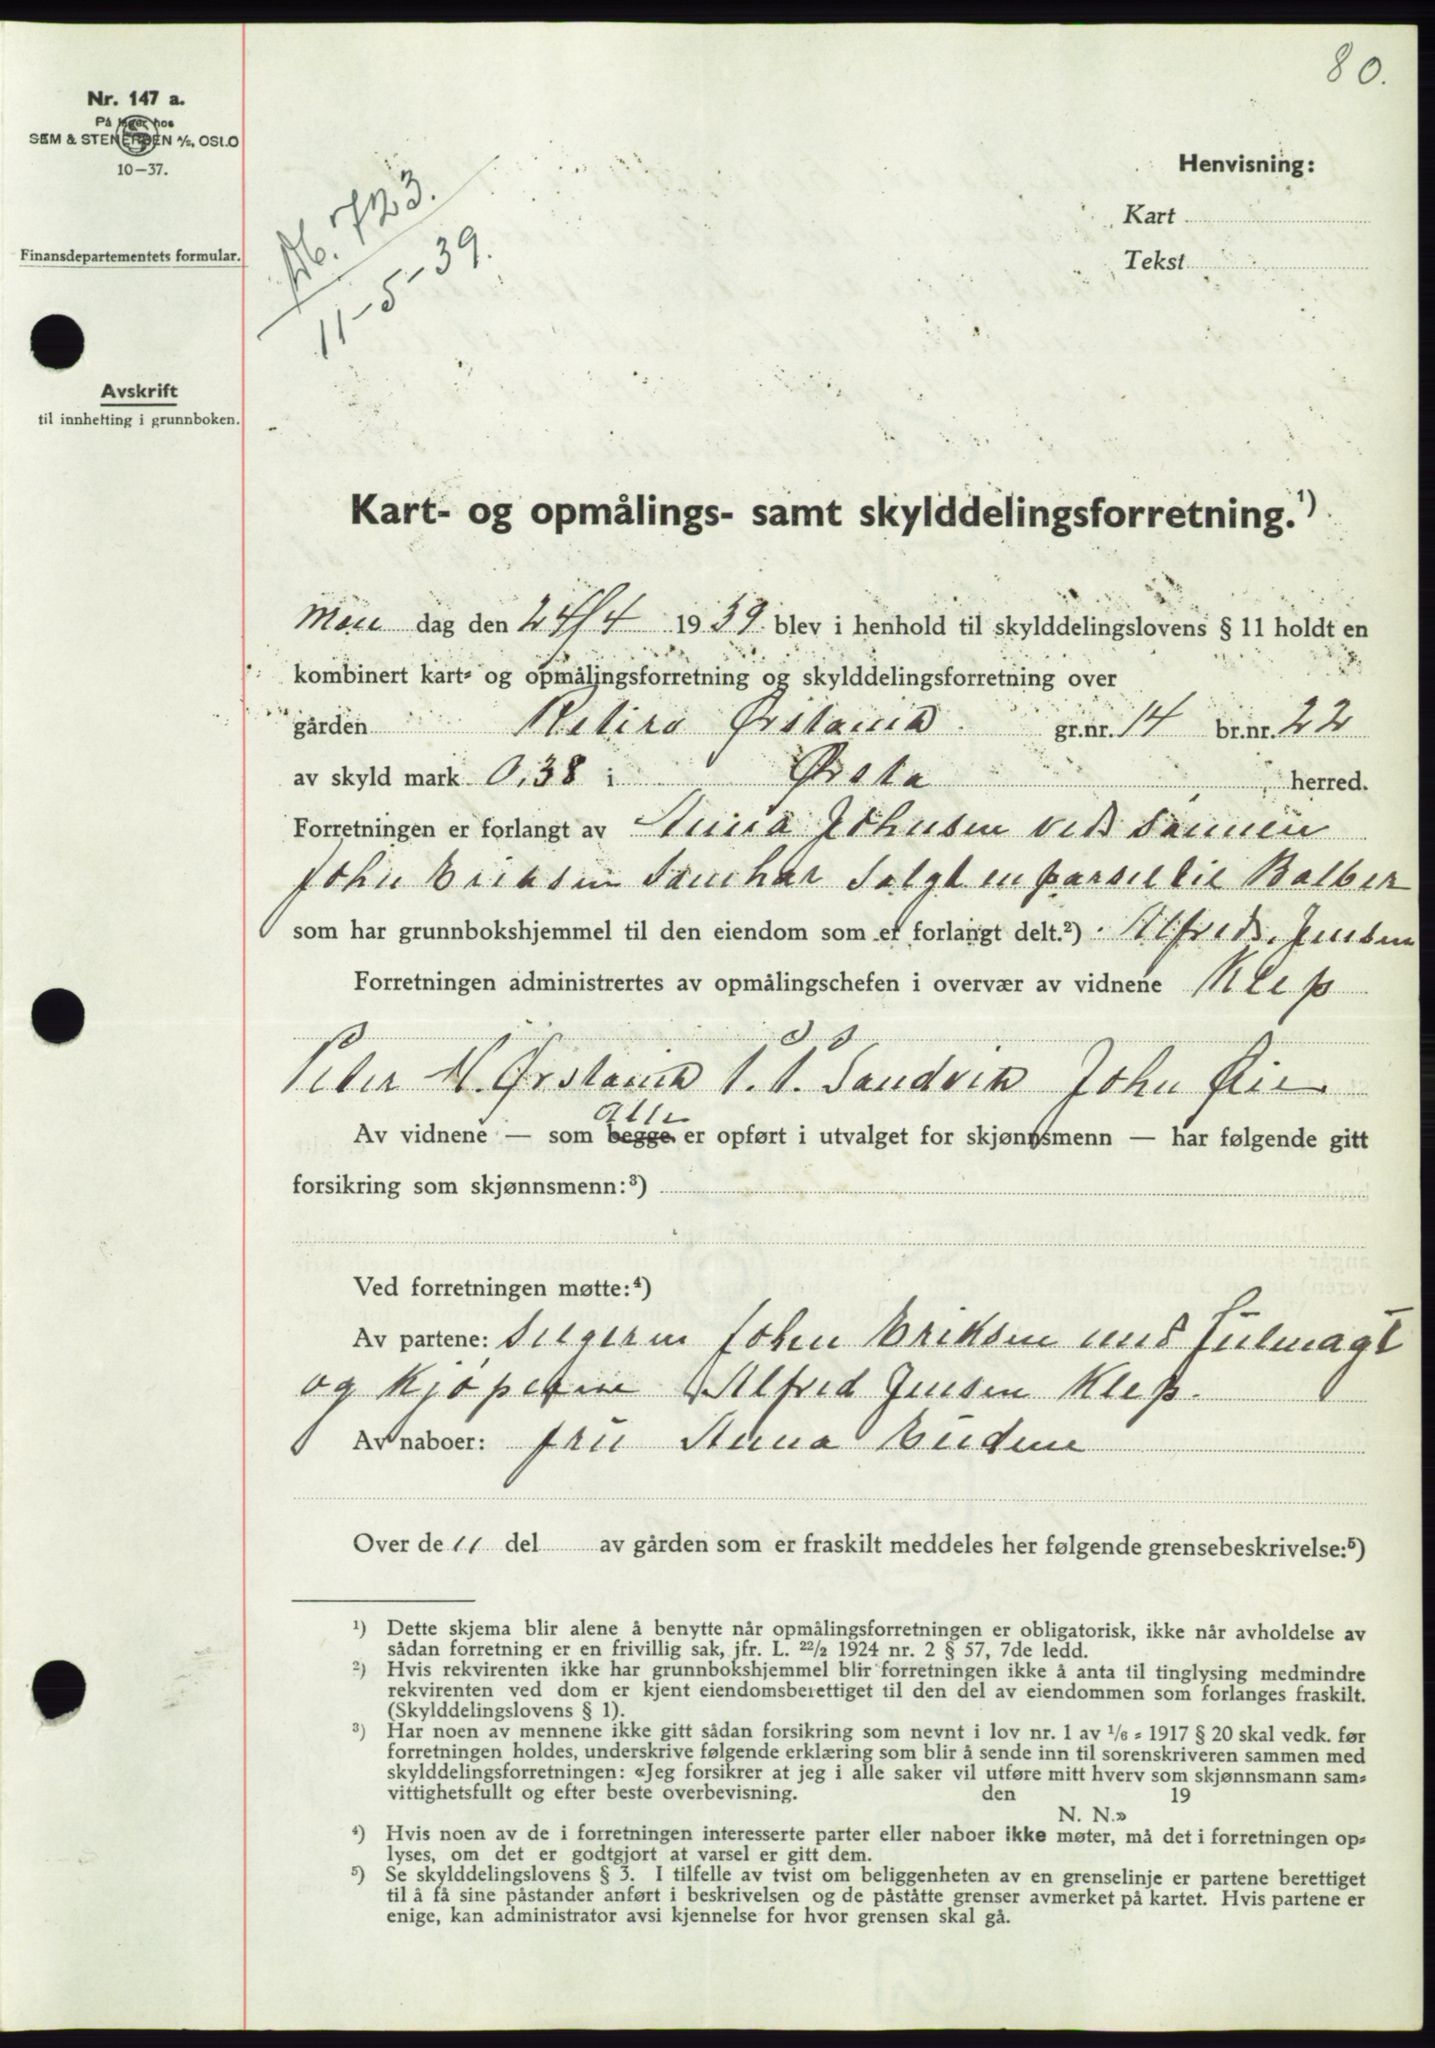 80.
Nr. 147 a.
På lager hos
SEM & STENERSEN A/S, OSLO
10-37.
Henvisning:
Kart
Tekst
Finansdepartementets formular.
Db. 723.
11-5-39.
Avskrift
til innhefting i grunnboken.
Kart- og opmålings- samt skylddelingsforretning.¹)
Man dag den 24/4 1939 blev i henhold til skylddelingslovens § 11 holdt en
kombinert kart- og opmålingsforretning og skylddelingsforretning over
gården Retiro Ørstavik gr.nr. 14 br.nr. 22
av skyld mark 0,38 i Ørsta herred.
Forretningen er forlangt av Anna Johnsen ved sønnen
John Eriksen som har solgt en parsel til Balber
som har grunnbokshjemmel til den eiendom som er forlangt delt.²) Alfred Jensen
Forretningen administrertes av opmålingschefen i overvær av vidnene Klep
Peter M. Ørstavik P. P. Sandvik John Øie
Av vidnene — som begge alle er opført i utvalget for skjønnsmenn — har følgende gitt
forsikring som skjønnsmenn:³)
Ved forretningen møtte:⁴)
Av partene: selgeren John Eriksen med fulmagt
og kjøperen Alfred Jensen Klep.
Av naboer: fru Anna
Over de 11 del av gården som er fraskilt meddeles her følgende grensebeskrivelse:⁵)
¹) Dette skjema blir alene å benytte når opmålingsforretningen er obligatorisk, ikke når avholdelse av
sådan forretning er en frivillig sak, jfr. L. 22/2 1924 nr. 2 § 57, 7de ledd.
²) Hvis rekvirenten ikke har grunnbokshjemmel blir forretningen ikke å anta til tinglysing medmindre
rekvirenten ved dom er kjent eiendomsberettiget til den del av eiendommen som forlanges fraskilt.
(Skylddelingslovens § 1).
³) Har noen av mennene ikke gitt sådan forsikring som nevnt i lov nr. 1 av 1/6 - 1917 § 20 skal vedk. før
forretningen holdes, underskrive følgende erklæring som blir å sende inn til sorenskriveren sammen med
skylddelingsforretningen: «Jeg forsikrer at jeg i alle saker vil utføre mitt hverv som skjønnsmann sam-
vittighetsfullt og efter beste overbevisning. den 19
N. N.»
⁴) Hvis noen av de i forretningen interesserte parter eller naboer ikke møter, må det i forretningen op-
lyses, om det er godtgjort at varsel er gitt dem.
⁵) Se skylddelingslovens § 3. I tilfelle av tvist om beliggenheten av en grenselinje er partene berettiget
til å få sine påstander anført i beskrivelsen og de påståtte grenser avmerket på kartet. Hvis partene er
enige, kan administrator avsi kjennelse for hvor grensen skal gå.